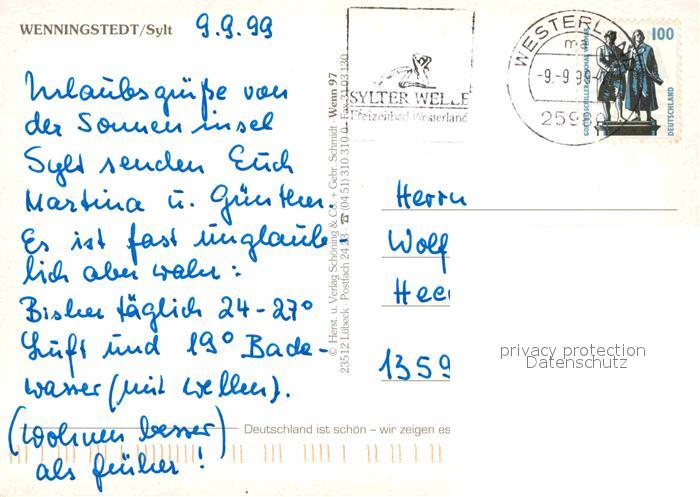 WENNINGSTEDT/Sylt 9.9.99
Urlaubsgrüße von
der Sonneninsel
Sylt senden Euch
Martina u. Günther.
Es ist fast unglaub-
lich aber wahr:
Bisher täglich 24-27°
Luft und 19° Bade-
wasser (mit Wellen).
(Wohnen besser)
als früher!
© Herst. u. Verlag Schöning & Co. + Gebr. Schmidt Wenn 97
23512 Lübeck · Postfach 24
SYLTER WELLE
Freizeitbad Westerland
WESTERLAND
-9.-9.99
259
100
DEUTSCHLAND
Herrn
Wolf
Hee
1359
privacy protection
Datenschutz
Deutschland ist schön – wir zeigen es